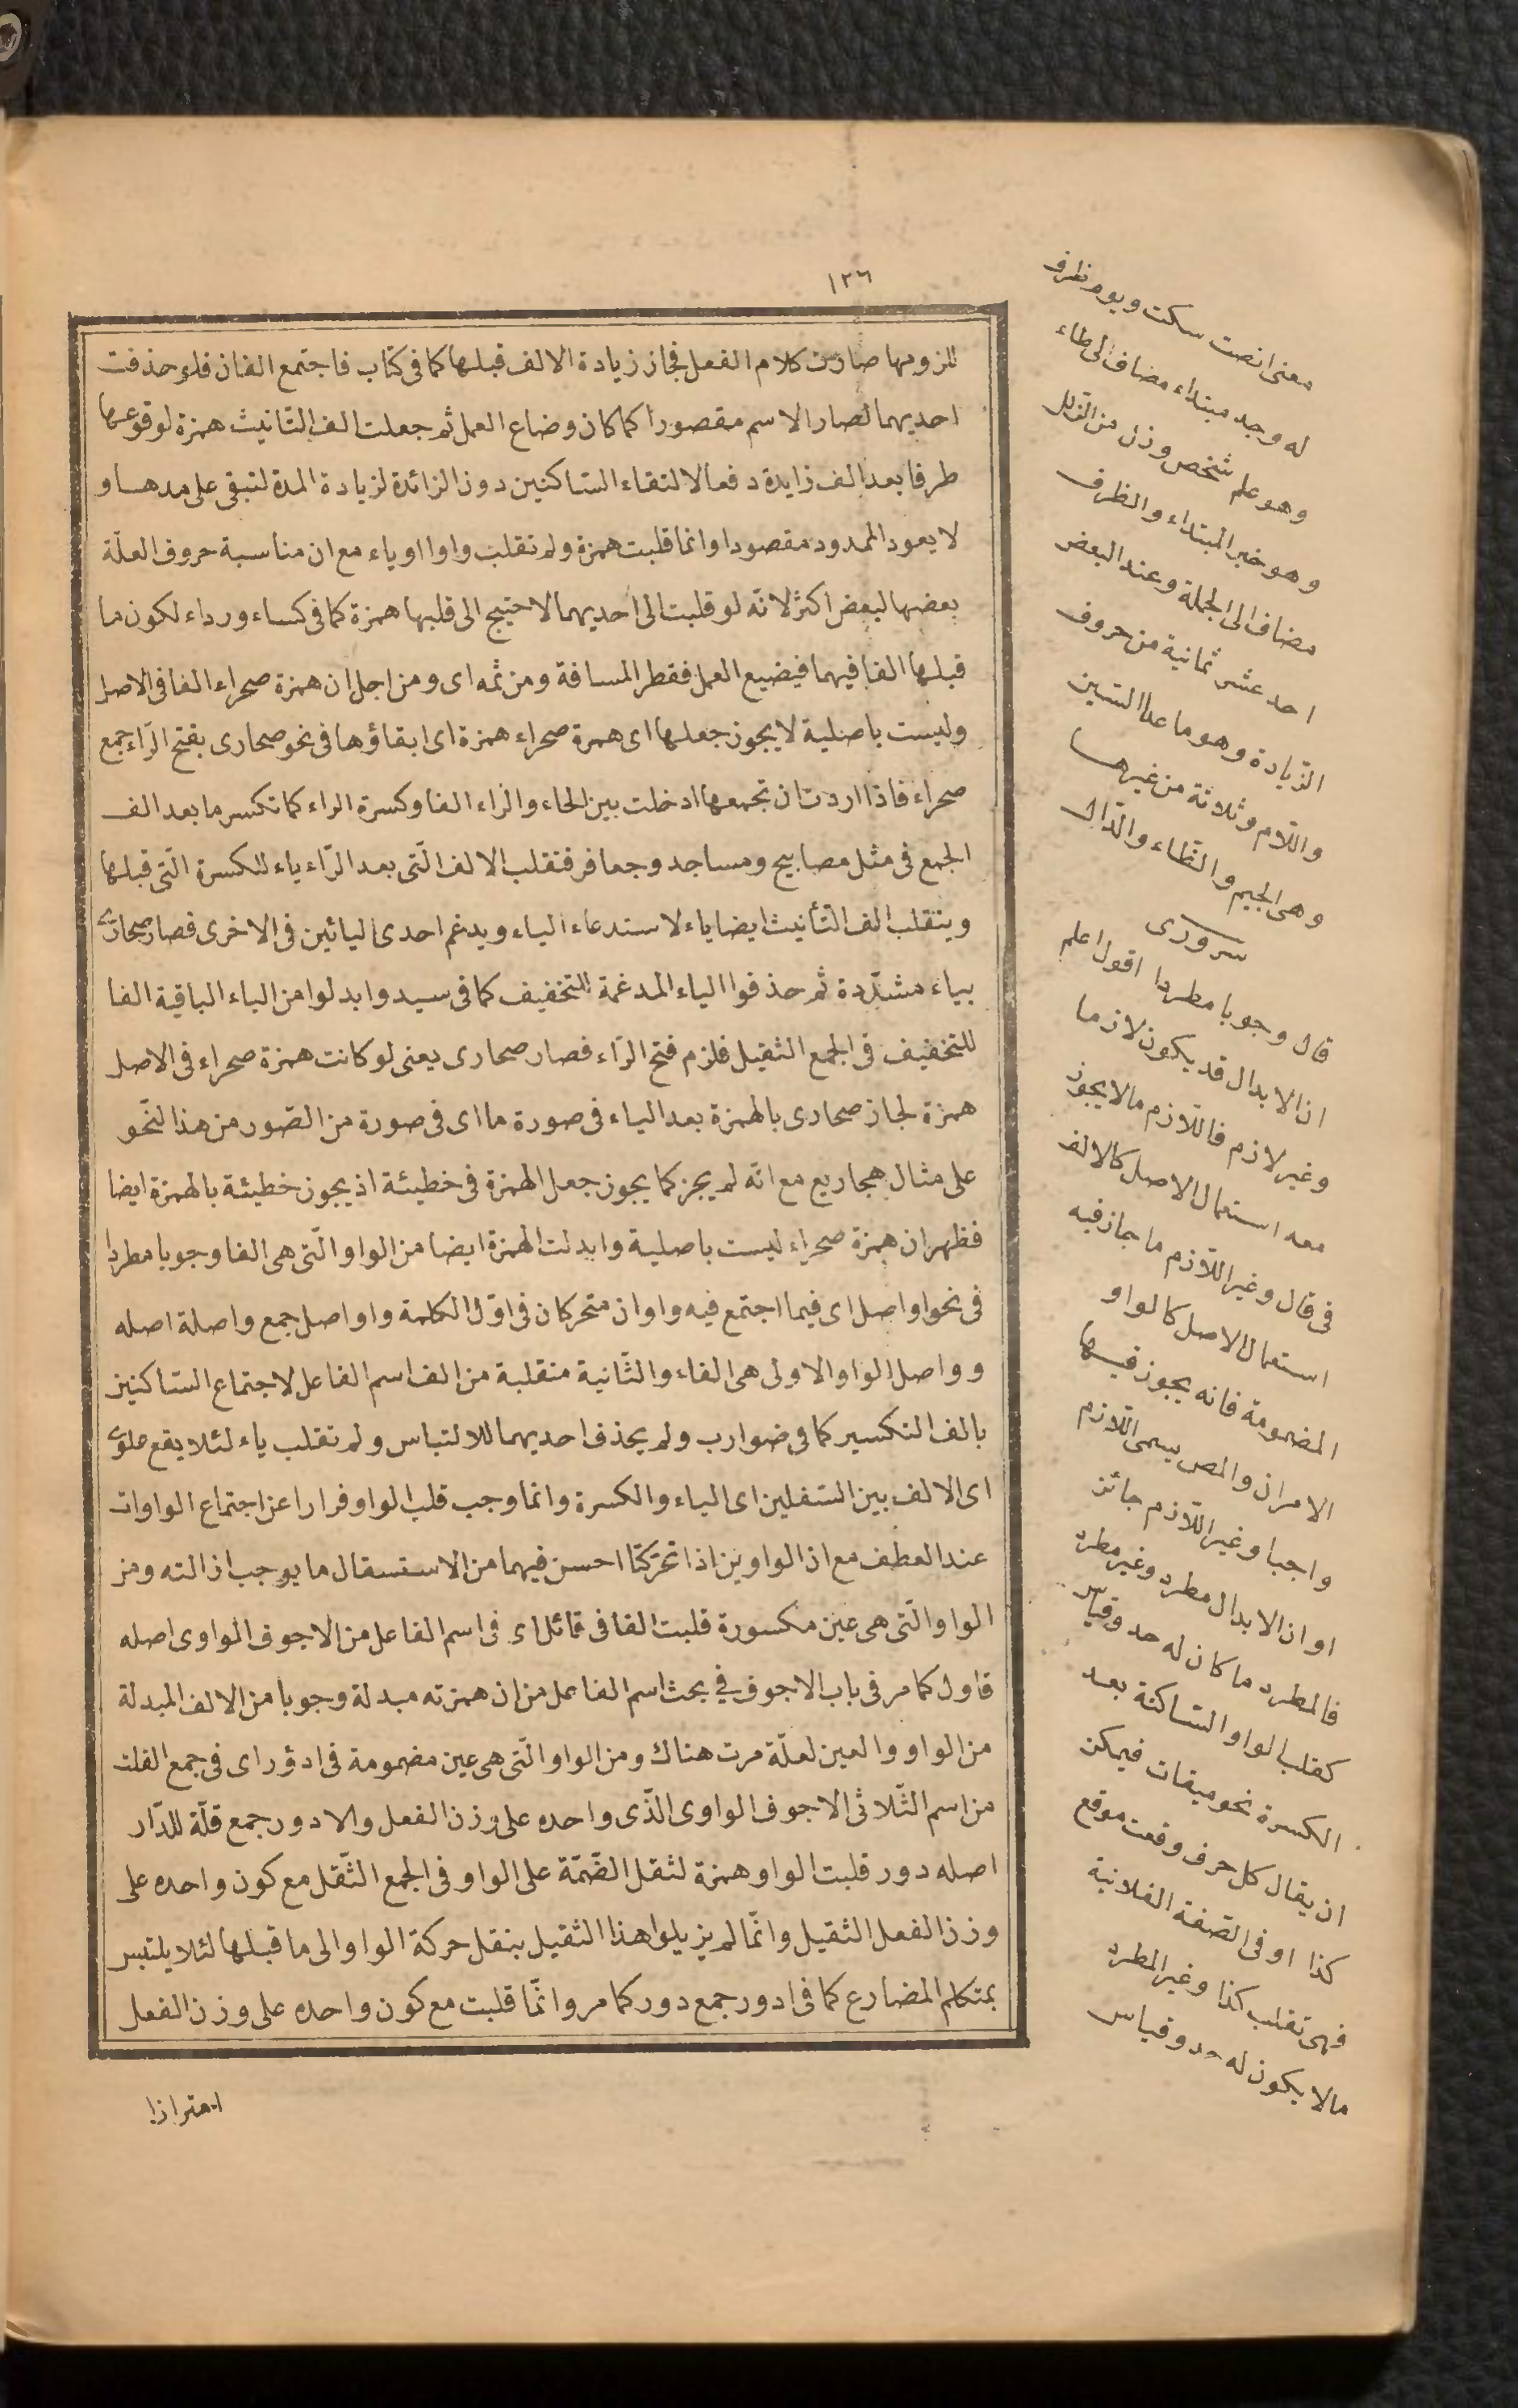 ١٢٦
للزومها صارت كلام الفعل فجاز زيادة الالف قبلها كما فى كتاب فاجتمع الفان فلو حذفت
احديهما لصار الاسم مقصورا كما كان وضاع العمل ثم جعلت الف التّانيث همزة لوقوعها
طرفا بعد الف زايدة دفعا لالتقاء السّاكنين دون الزائدة لزيادة المدة لتبقى على مدها و
لا يعود الممدود مقصودا وانما قلبت همزة ولم تقلب واوا او ياء مع ان مناسبة حروف العلّة
بعضها لبعض اكثر لانّه لو قلبت الى احديهما لاحتيج الى قلبها همزة كما فى كساء ورداء لكون ما
قبلها الفا فيهما فيضيع العمل فقطر المسافة ومن ثمه اى ومن اجل ان همزة صحراء الفا فى الاصل
وليست باصلية لا يجوز جعلها اى همزة صحراء همزة اى ابقاؤها فى نحو صحارى بفتح الرّاء جمع
صحراء فاذا اردت ان تجمعها ادخلت بين الحاء والراء الفا وكسرة الراء كما تكسر ما بعد الف
الجمع فى مثل مصابيح ومساجد وجعافر فتقلب الالف الّتى بعد الرّاء ياء للكسرة الّتى قبلها
وينقلب الف التّأنيث ايضا ياء لاستدعاء الياء ويدغم احدى اليائين فى الاخرى فصار صحارىّ
بياء مشدّدة ثم حذفوا الياء المدغمة للتخفيف كما فى سيد وابدلوا من الياء الباقية الفا
للتخفيف فى الجمع الثقيل فلزم فتح الرّاء فصار صحارى يعنى لو كانت همزة صحراء فى الاصل
همزة لجاز صحارى بالهمزة بعد الياء فى صورة ما اى فى صورة من الصّور من هذا النّحو
على مثال هجاريع مع انّه لم يجز كما يجوز جعل الهمزة فى خطيئة اذ يجوز خطيئة بالهمزة ايضا
فظهر ان همزة صحراء ليست باصلية وابدلت الهمزة ايضا من الواو الّتى هى الفا وجوبا مطردا
فى نحو اواصل اى فيما اجتمع فيه واوان متحركان فى اوّل الكلمة واواصل جمع واصلة اصله
وواصل الواو الاولى هى الفاء والثّانية منقلبة من الف اسم الفاعل لاجتماع السّاكنين
بالف التكسير كما فى ضوارب ولم يحذف احديهما للالتباس ولم تقلب ياء لئلا يقع علوىّ
اى الالف بين السّفلين اى الياء والكسرة وانما وجب قلب الواو فرارا عن اجتماع الواوات
عند العطف مع ان الواوين اذا تحرّكتا احسن فيهما من الاستسقال ما يوجب ازالته ومن
الواو الّتى هى عين مكسورة قلبت الفا فى قائل اى فى اسم الفاعل من الاجوف الواوى اصله
قاول كما مر فى باب الاجوف فى بحث اسم الفاعل من ان همزته مبدلة وجوبا من الالف المبدلة
من الواو والعين لعلّة مرت هناك ومن الواو الّتى هى عين مضمومة فى ادؤر اى فى جمع القلت
من اسم الثّلاثى الاجوف الواوى الذّى واحده على وزن الفعل والادور جمع قلّة للدّار
اصله دور قلبت الواو همزة لثقل الضّمّة على الواو فى الجمع الثّقل مع كون واحده على
وزن الفعل الثقيل وانّما لم يزيلوا هذا الثقيل بنقل حركة الواو الى ما قبلها لئلا يلتبس
بمتكلم المضارع كما فى ادور جمع دور كما مر وانّما قلبت مع كون واحده على وزن الفعل
احترازا
معنى انصت سكت ويوم ظرف
له وجد مبتداء مضاف الى طاء
وهو علم شخص وزل من الزلل
وهو خبر المبتداء والظرف
مضاف الى الجملة وعند البعض
احد عشر ثمانية من حروف
الزّيادة وهو ما عدا السّين
واللّام وثلاثة من غيرها
وهى الجيم والطّاء والدّال
سرورى
قال وجوبا مطردا اقول اعلم
ان الابدال قد يكون لازما
وغير لازم فاللّازم ما لا يجوز
معه استعمال الاصل كالالف
فى قال وغير اللّازم ما جاز فيه
استعمال الاصل كالواو
المضمومة فانه يجوز فيها
الامران والمص يسمى اللّازم
واجبا وغير اللّازم جائز
او ان الابدال مطرد وغير مطرد
فالمطرد ما كان له حد وقياس
كقلب الواو السّاكنة بعد
الكسرة نحو ميقات فيمكن
ان يقال كل حرف وقعت موقع
كذا او فى الصّفة الفلانية
فهى تقلب كذا وغير المطرد
ما لا يكون له حد وقياس